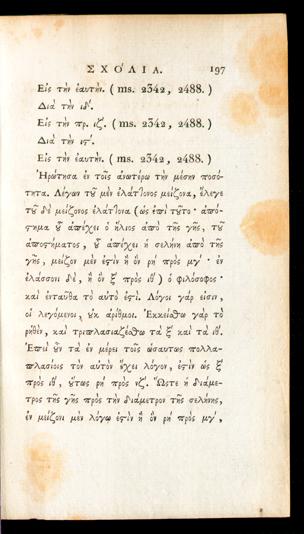 ΣΧΟ´ΛΙΑ. 197
Εἰς τὴν ἑαυτήν. (ms. 2342, 2488.)
Διὰ τὴν ιδ´.
Εἰς τὴν πρ. ιζ´. (ms. 2342, 2488.)
Διὰ τὴν ιϛ´.
Εἰς τὴν ἑαυτήν. (ms. 2342, 2488.)
Ἠρώτησα ἐν τοῖς ἀνωτέρω τὴν μέσην ποσό-
τητα. Λέγων τȣ̃ μὲν ἐλάττονος μείζονα, ἔλεγε
τȣ̃ δὲ μείζονος ἐλάττονα (ὡς ἐπὶ τȣ́τȣ· ἀπό-
ϛημα ȣ̃ ἀπέχει ὁ ἥλιος ἀπὸ τῆς γῆς, τȣ̃
ἀποϛήματος, ȣ̃ ἀπέχει ἡ σελήνη ἀπὸ τῆς
γῆς, μεῖζον μέν ἐϛιν ἢ ὃν ρή πρὸς μγ´· ἐν
ἐλάσσονι δὲ, ἢ ὃν ξ´ πρὸς ιθ´) ὁ φιλόσοφος·
καὶ ἐνταῦθα τὸ αὐτό ἐϛι. Λόγοι γάρ εἰσιν,
οἱ λεγόμενοι, ȣ̓κ ἀριθμοί. Ἐκκείσθω γὰρ τὸ
ῥηθὲν, καὶ τριπλασιαζέσθω τὰ ξ´ καὶ τὰ ιθ´.
Ἐπεὶ ȣ̃ν τὰ ἐν μέρει τοῖς ὡσαύτως πολλα-
πλασίοις τὸν αὐτὸν ἔχει λόγον, ἐϛὶν ὡς ξ´
πρὸς ιθ´, ȣ̔́τως ρπ´ πρὸς νζ´. Ὥϛε ἡ διάμε-
τρος τῆς γῆς πρὸς τὴν διάμετρον τῆς σελήνης,
ἐν μείζονι μὲν λόγῳ ἐϛὶν ἢ ὃν ρή πρὸς μγ´,